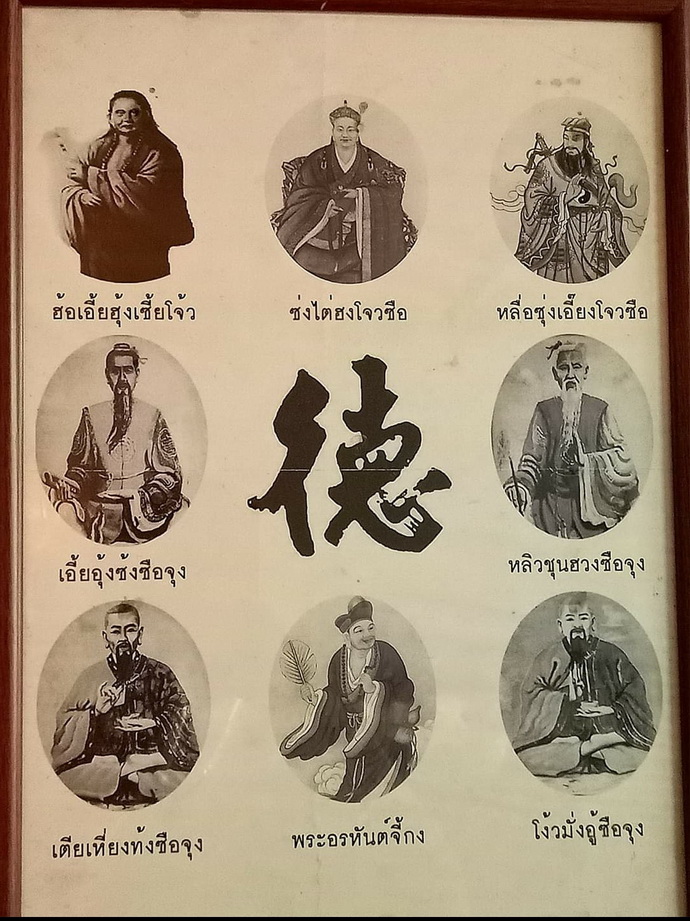 ฮ้อเอี้ยฮุ้งเซี้ยโจ้ว
ซ่งไต่ฮงโจวซือ
หลื่อซุ่งเอี๊ยงโจวซือ
德
เอี้ยอุ้งซ้งซือจุง
หลิวชุนฮวงซือจุง
เตียเหี่ยงท้งซือจุง
พระอรหันต์จี้กง
โง้วมั่งอู้ซือจุง